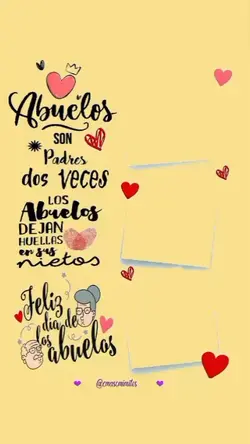 Abuelos
SON
Padres
dos veces
LOS
Abuelos
DEJAN
HUELLAS
en sus
nietos
Feliz
día de
los
abuelos